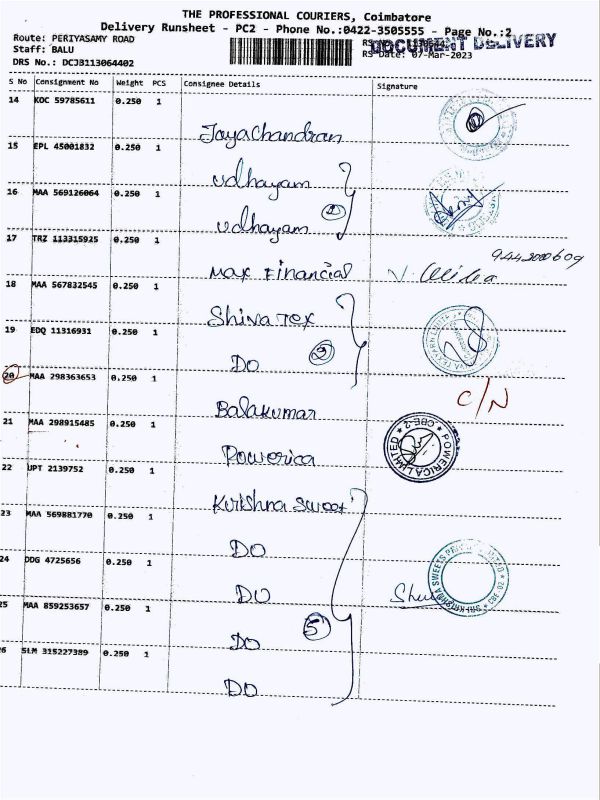 THE PROFESSIONAL COURIERS, Coimbatore
Delivery Runsheet - PC2 - Phone No.:0422-3505555 - Page No.:2
DOCUMENT DELIVERY
Route: PERIYASAMY ROAD
Staff: BALU
RS Date: 07-Mar-2023
DRS No.: DCJB113064402
S No Consignment No Weight PCS Consignee Details Signature
14 KOC 59785611 0.250 1 JayaChandran
15 EPL 45001832 0.250 1 Udhayam
16 MAA 569126064 0.250 1 Udhayam
2
17 TRZ 113315925 0.250 1 Max Financial
18 MAA 567832545 0.250 1 Shiva Tex
19 EDQ 11316931 0.250 1 DO
2
20 MAA 298363653 0.250 1 Balakumar C/N
21 MAA 298915485 0.250 1 Powerica
POWERICA LIMITED * CBE-2 *
22 UPT 2139752 0.250 1 Krishna Sweet
23 MAA 569881770 0.250 1 DO
24 DDG 4725656 0.250 1 DO
SRI KRISHNA SWEETS PRIVATE LIMITED
25 MAA 859253657 0.250 1 DO
5
26 SLM 315227389 0.250 1 DO